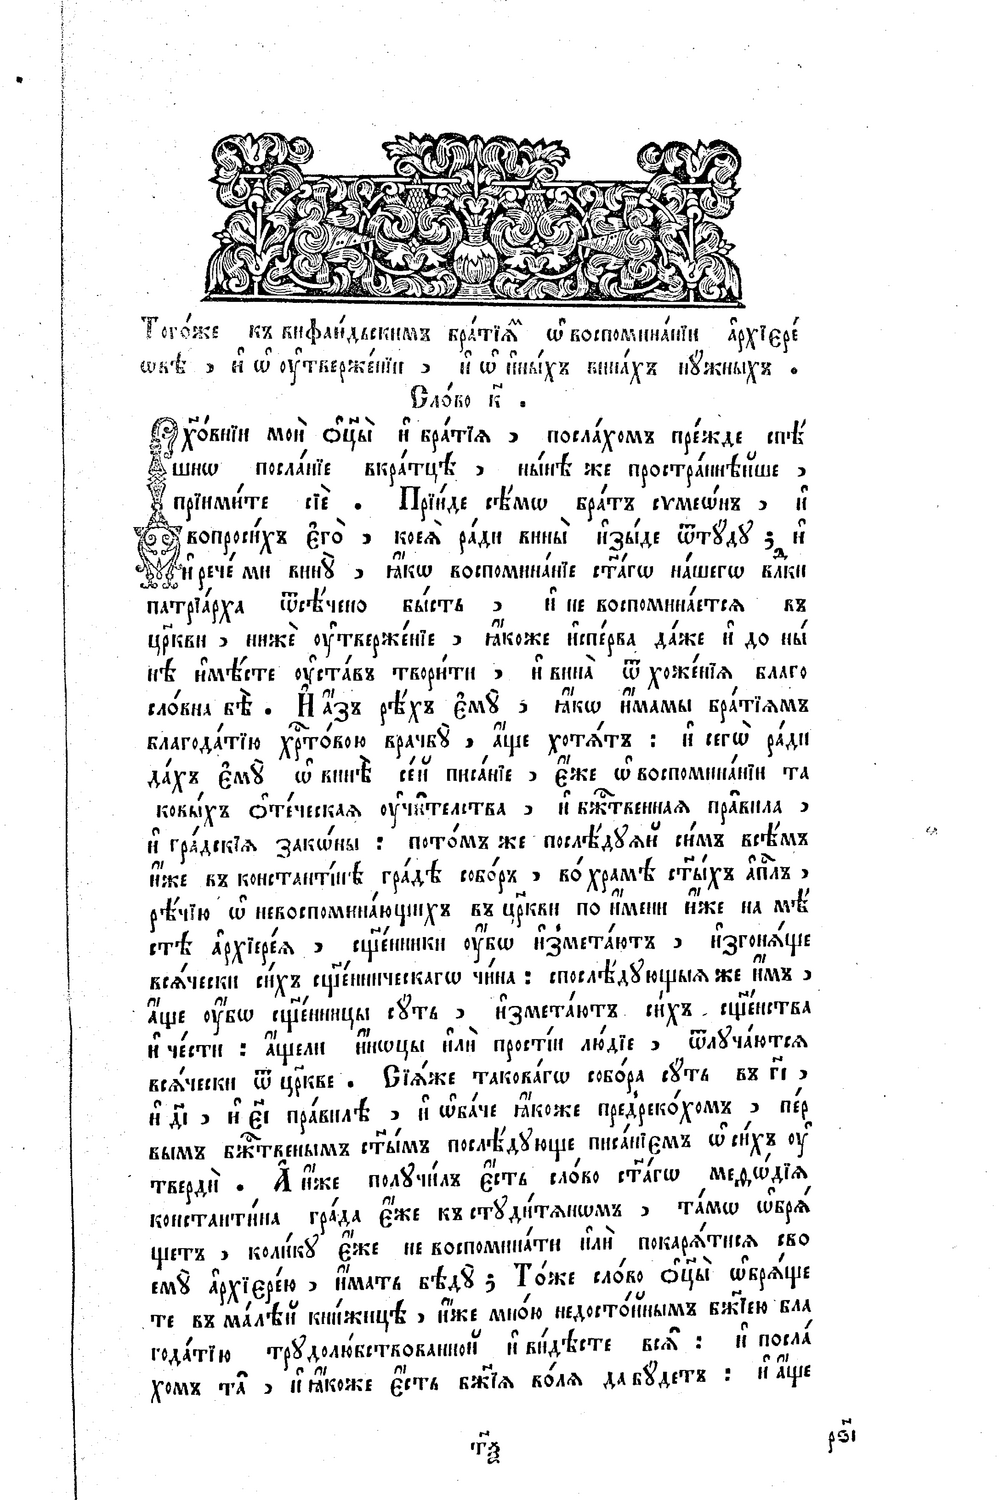 Тогѡ́же къ вифаи́дьскимъ бра́тїѧⷨ ѡ҆ воспомина́нїи а҆рхїєре́
ѡвѣ , и҆ ѡ҆ оу҆твержє́нїи , и҆ ѡ҆ и҆ны́хъ вина́хъ нꙋ́жныхъ .
Сло́во к҃ .
Дꙋхо́внїи моѝ ѻ҆ц҃ы̀ и҆ бра́тїѧ , посла́хомъ пре́жде спѣ́
шнѡ посла́нїе вкра́тцѣ , ны́нѣ же простра́ннѣйше ,
прїими́те сїѐ . Прїи́де сѣ́мѡ бра́тъ сѵмеѡ́нъ , и҆
вопроси́хъ є҆го̀ , коеѧ̀ ра́ди вины̀ и҆зы́де ѿтꙋ́дꙋ ; и҆
и҆ рече́ ми винꙋ̀ , ꙗ҆́кѡ воспомина́нїе ст҃а́гѡ на́шегѡ влⷣки
патрїа́рха ѿсѣ́чено бы́сть , и҆ не воспомина́етсѧ въ
цр҃кви , нижѐ оу҆твержє́нїе , ꙗ҆́коже и҆спе́рва да́же и҆ до ны́
нѣ и҆мѣ́сте оу҆ста́въ твори́ти , и҆ вина̀ ѿ хоже́нїѧ благо
сло́вна бѣ̀ . И҆ а҆́зъ рѣ́хъ є҆мꙋ̀ , ꙗ҆́кѡ и҆́мамы бра́тїѧмъ
благода́тїю хрⷭ҇то́вою врачбꙋ̀ , а҆́ще хотѧ́тъ : и҆ сегѡ̀ ра́ди
да́хъ є҆мꙋ̀ ѡ҆ винѣ̀ се́й писа́нїе , є҆́же ѡ҆ воспомина́нїи та
ковы́хъ ѻ҆те́ческаѧ оу҆чи́телства , и҆ бжⷭ҇твеннаѧ пра́вила ,
и҆ гра́дскїѧ зако́ны : пото́мъ же послѣ́дꙋѧй си́мъ всѣ́мъ
и҆́же въ константі́нѣ гра́дѣ собо́ръ , во́ храмѣ ст҃ы́хъ а҆пⷭ҇лъ ,
рѣ́чїю ѡ҆ невоспомина́ющихъ въ цр҃кви по и҆́мени и҆́же на мѣ́
стѣ а҆рхїере́ѧ , сщ҃е́нники оу҆́бѡ и҆змета́ютъ , и҆згонѧ́ще
всѧ́чески си́хъ сщ҃е́нническагѡ чи́на : спослѣ́дꙋющыѧ же и҆̀мъ ,
а҆́ще оу҆́бѡ сщ҃е́нницы сꙋ́ть , и҆змета́ютъ си́хъ сщ҃е́нства
и҆ че́сти : а҆́щели и҆́нѡцы и҆лѝ прості́и лю́дїе , ѿлꙋча́ютсѧ
всѧ́чески ѿ цр҃кве . Сїѧ́же такова́гѡ собо́ра сꙋ́ть въ г҃і ,
и҆ д҃і , и҆ є҃і пра́вилѣ , и҆ ѡ҆ба́че ꙗ҆́коже пред̾реко́хомъ , пе́р
вымъ бжⷭ҇твенымъ ст҃ы́мъ послѣ́дꙋюще писа́нїемъ ѡ҆ си́хъ оу҆
твердѝ . А҆ и҆́же полꙋчи́лъ є҆́сть сло́во ст҃а́гѡ меѳѡ́дїѧ
константи́на гра́да є҆́же къ стꙋди́тѧнѡмъ , та́мѡ ѡ҆брѧ́
щетъ , коли́кꙋ є҆́же не воспомина́ти и҆лѝ покарѧ́тисѧ сво
емꙋ̀ а҆рхїєре́ю , и҆́мать бѣ́дꙋ ; То́же сло́во ѻ҆ц҃ы̀ ѡ҆брѧ́ще
те въ ма́лѣй кни́жицѣ , и҆́же мно́ю недосто́йнымъ бж҃їею бла
года́тїю трꙋдолю́бствованной и҆ ви́дѣсте всѧ̑ : и҆ посла́
хомъ та̑ , и҆ ꙗ҆́коже є҆́сть бж҃їѧ во́лѧ да бꙋ́детъ : и҆ а҆́ще